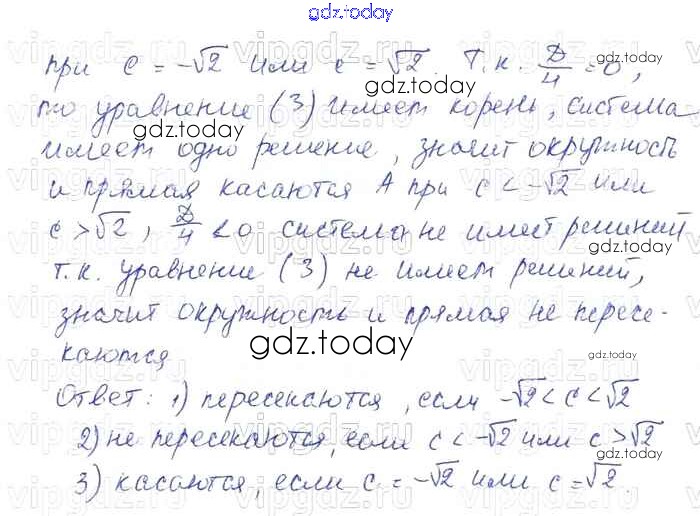 gdz.today
при c = -√2 или c = √2. Т.к. D/4 = 0,
то уравнение (3) имеет корень, система
имеет одно решение, значит окружность
и прямая касаются А при c < -√2 или
c > √2, D/4 < 0 система не имеет решений
т.к. уравнение (3) не имеет решений,
значит окружность и прямая не пересе-
каются
Ответ: 1) пересекаются, если -√2 < c < √2
2) не пересекаются, если c < -√2 или c > √2
3) касаются, если c = -√2 или c = √2.
gdz.today
gdz.today
gdz.today
gdz.today
gdz.today
gdz.today
gdz.today
gdz.today
gdz.today